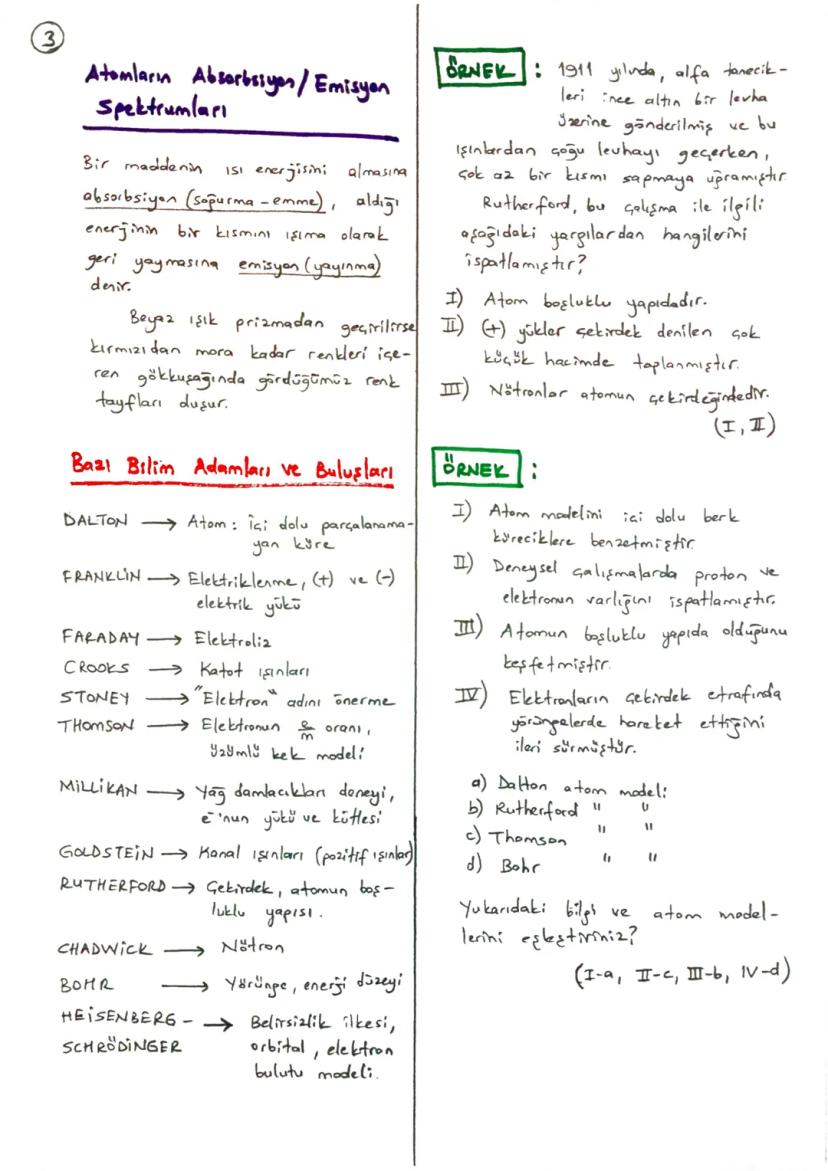 3
Atomların Absorbsiyon/Emisyon
Spektrumları
Bir maddenin ısı enerjisini almasına
absorbsiyon (soğurma-emme), aldığı
enerjinin bir kısmını ışıma olarak
geri yaymasına emisyon (yayınma)
denir.
Beyaz ışık prizmadan geçirilirse
kırmızıdan mora kadar renkleri içe-
ren gökkuşağında gördüğümüz renk
tayfları oluşur.
Bazı Bilim Adamları ve Buluşları
DALTON → Atom: içi dolu parçalanama-
yan küre
FRANKLİN → Elektriklenme, (+) ve (-)
elektrik yükü
FARADAY → Elektroliz
CROOKS → Katot ışınları
STONEY → "Elektron" adını önerme
THOMSON → Elektronun e/m oranı,
üzümlü kek modeli
MİLLİKAN → Yağ damlacıkları deneyi,
e⁻'nun yükü ve kütlesi
GOLDSTEİN → Kanal ışınları (pozitif ışınlar)
RUTHERFORD → Çekirdek, atomun boş-
luklu yapısı.
CHADWICK → Nötron
BOHR → Yörünge, enerji düzeyi
HEİSENBERG - → Belirsizlik ilkesi,
SCHRÖDİNGER orbital, elektron
bulutu modeli.
ÖRNEK : 1911 yılında, alfa tanecik-
leri ince altın bir levha
üzerine gönderilmiş ve bu
ışınlardan çoğu levhayı geçerken,
çok az bir kısmı sapmaya uğramıştır.
Rutherford, bu çalışma ile ilgili
aşağıdaki yargılardan hangilerini
ispatlamıştır?
I) Atom boşluklu yapıdadır.
II) (+) yükler çekirdek denilen çok
küçük hacimde toplanmıştır.
III) Nötronlar atomun çekirdeğindedir.
(I, II)
ÖRNEK :
I) Atom modelini içi dolu berk
küreciklere benzetmiştir.
II) Deneysel çalışmalarda proton ve
elektronun varlığını ispatlamıştır.
III) Atomun boşluklu yapıda olduğunu
keşfetmiştir.
IV) Elektronların çekirdek etrafında
yörüngelerde hareket ettiğini
ileri sürmüştür.
a) Dalton atom modeli
b) Rutherford " "
c) Thomson " "
d) Bohr " "
Yukarıdaki bilgi ve atom model-
lerini eşleştiriniz?
(I-a, II-c, III-b, IV-d)